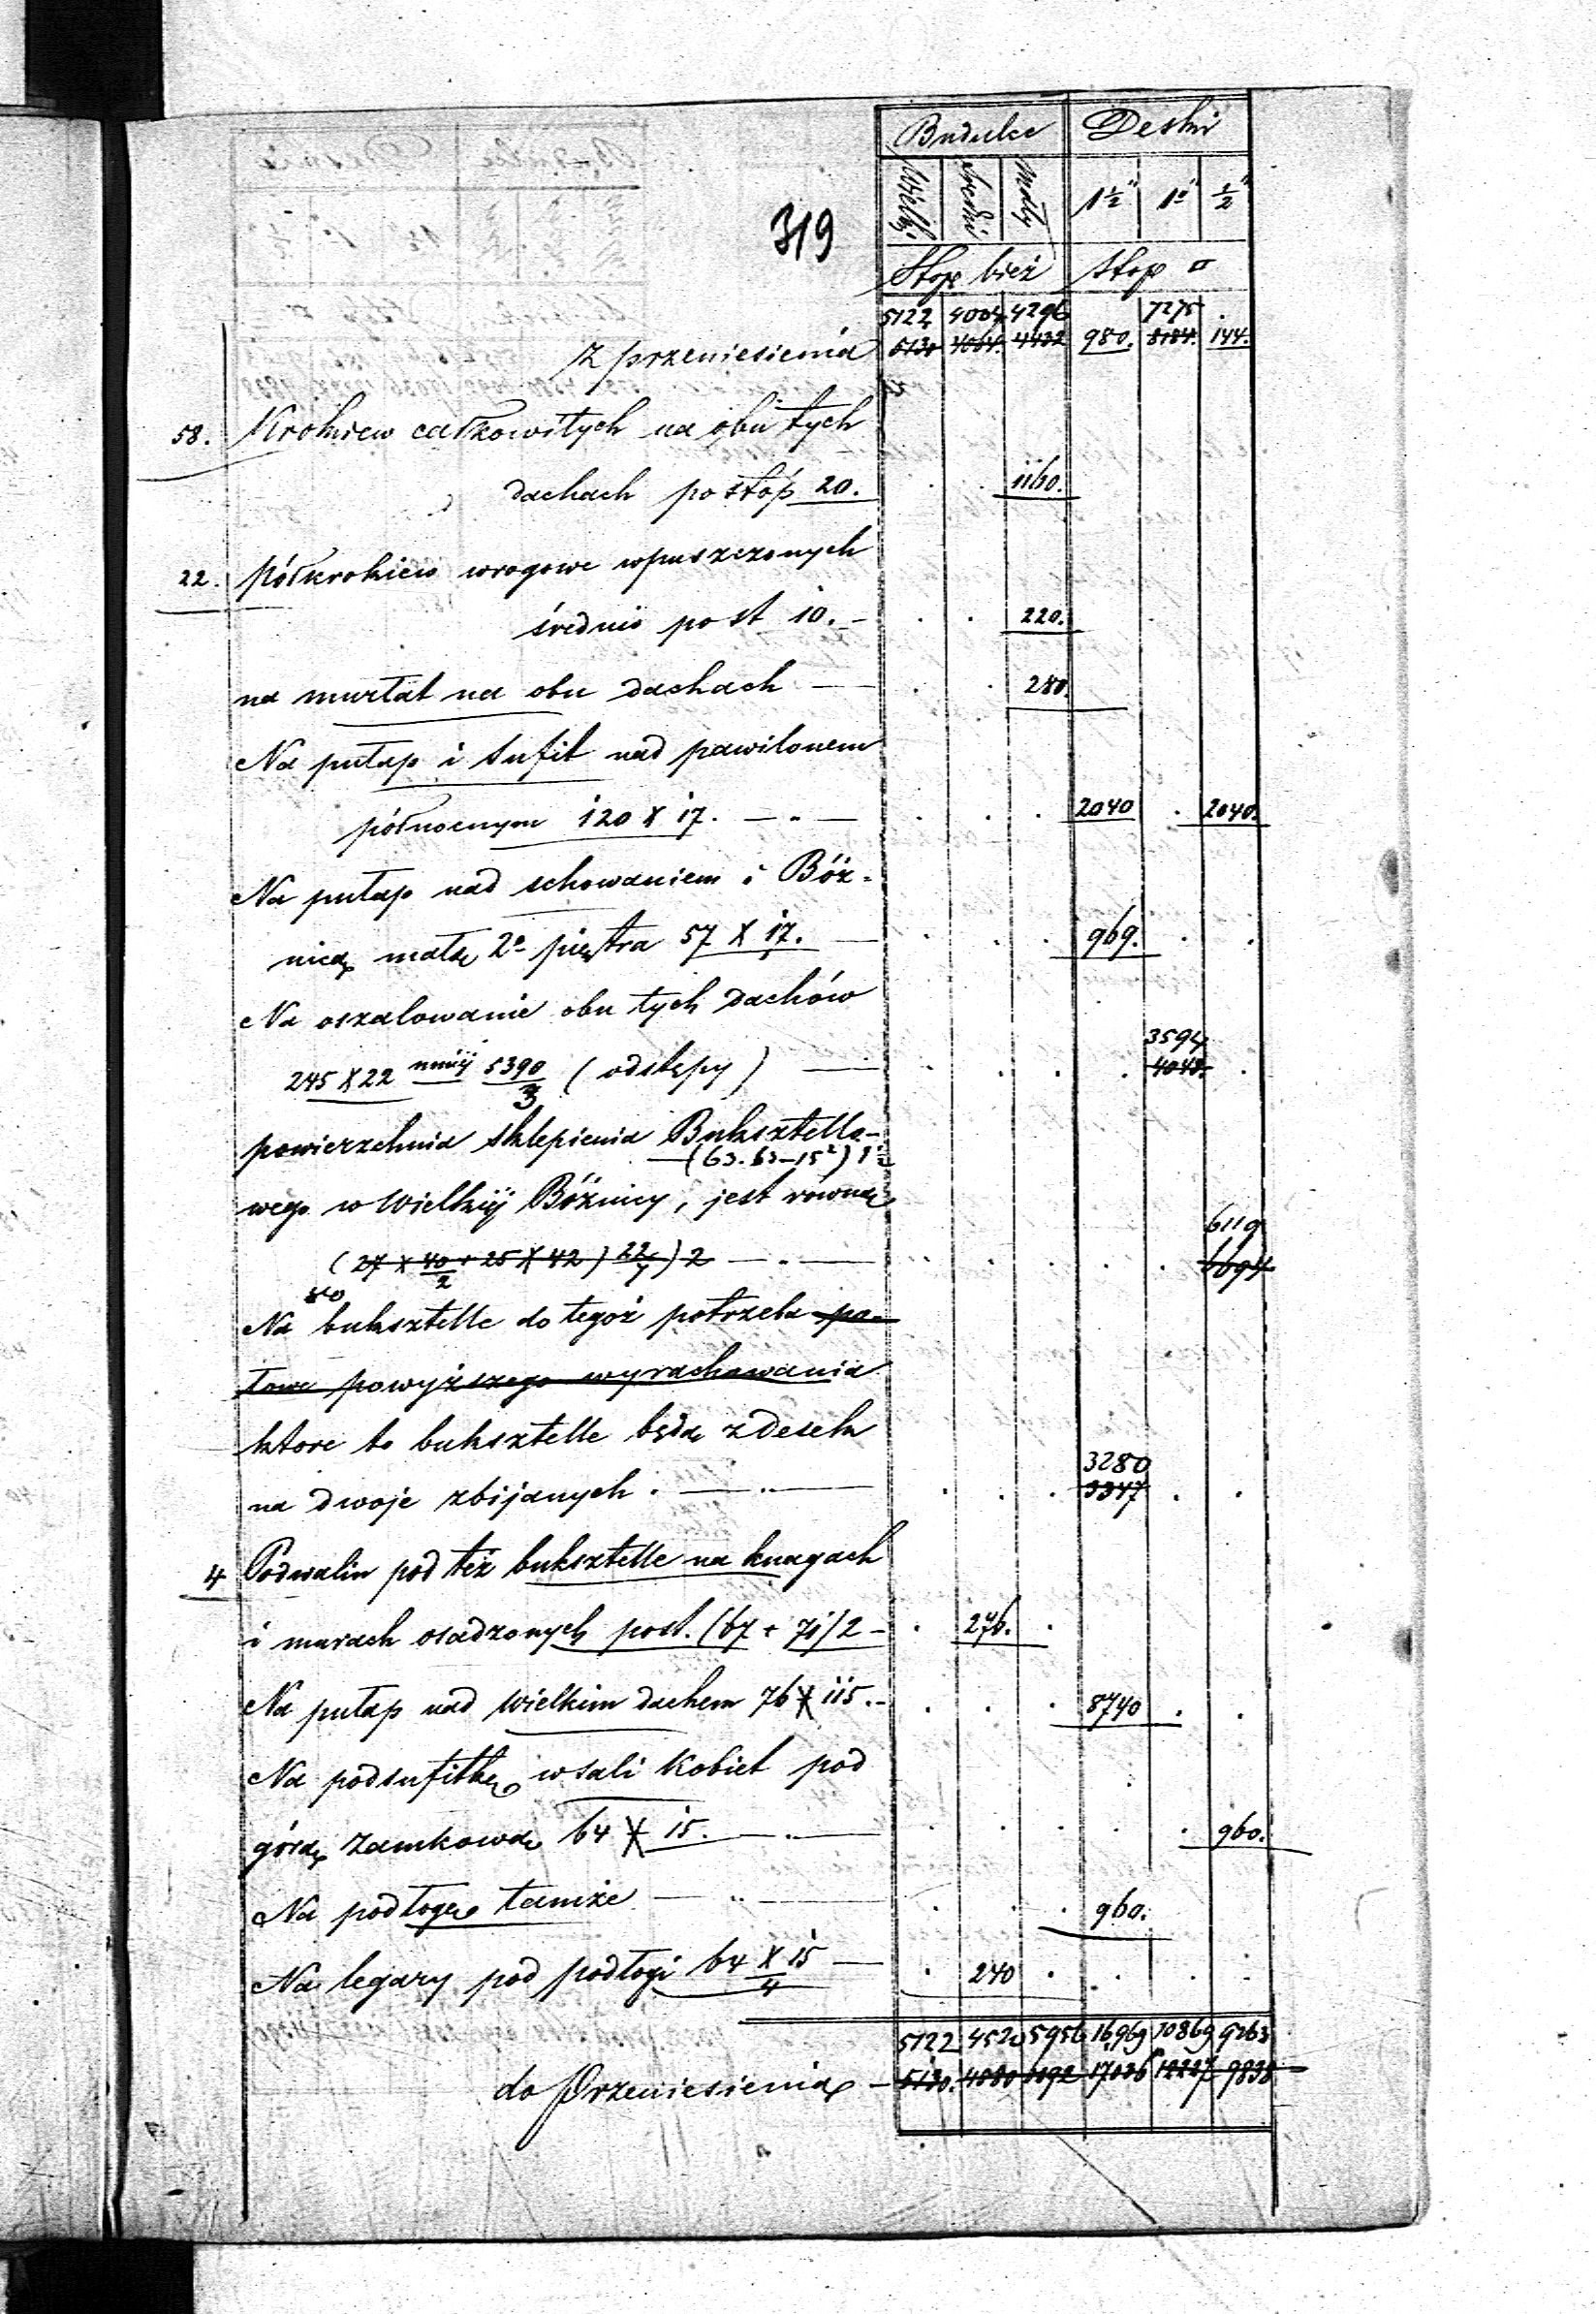 Budulec Deski
Wielki średni mały 1½" 1" ½"
319
Stop bież stop □
5122 4004 4296 7275
z przeniesienia 5130 4064. 4432 980. 8184. 144.
58. Krokiew całkowitych na obu tych
dachach po stóp 20. 1160.
22. półkrokiew w rogowe wpuszczonych
średnio po st 10. – 220.
na murłat na obu dachach — 280.
Na pułap i sufit nad pawilonem
północnym 120 X 17. — " — 2040 2040.
Na pułap nad schowaniem i Bóż-
nicą małą 2º piętra 57 X 17. — 969.
Na oszalowanie obu tych dachów
3594
245 X 22 mniej 5390/3 (odstępy) — 4043.
powierzchnia sklepienia Buksztello-
(63. 63 – 15²) 1½
wego w Wielkiej Bóżnicy, jest równa
6119
(27 x 40/2 + 25 X 42) 22/7) 2 — " — 6694
80
Na buksztelle do tegoż potrzeba po-
łowa powyższego wyrachowania
które to buksztelle będą z desek
3280
na dwoje zbijanych. — " — 3347
4 Podwalin pod też buksztelle na knagach
i murach osadzonych po st. (67 + 71) 2 – 276.
Na pułap nad wielkim dachem 76 X 115. – 8740
Na podsufitkę w sali Kobiet pod
górą Zamkową 64 X 15. — " — 960.
Na podłogę tamże — " — 960.
Na legary pod podłogi 64 X 15/4 — 240
5122 4520 5956 16969 10869 9263
do Przeniesienia – 5130. 4580 6092 17036 12227 9838